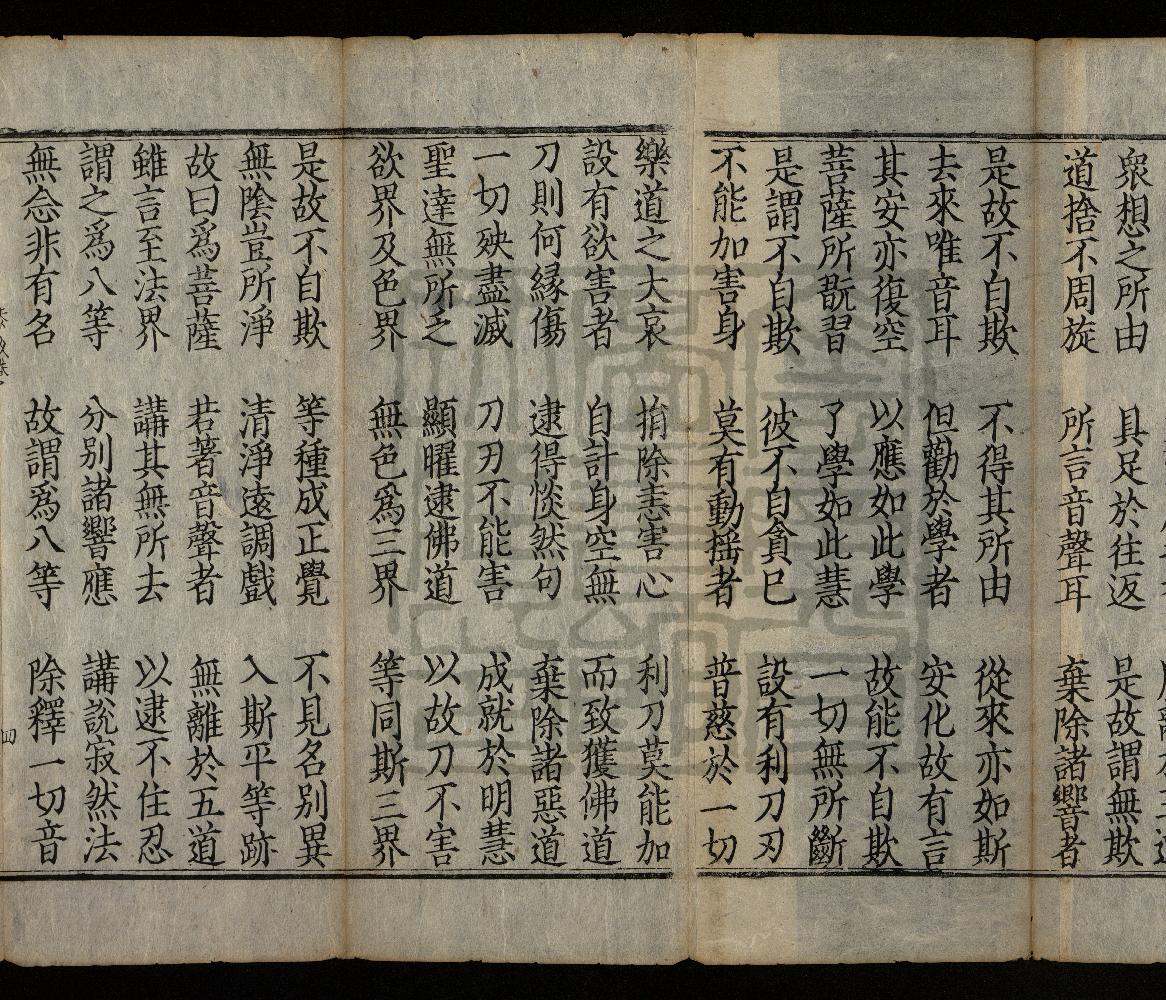 衆想之所由　具足於往返　是故謂無欺
道捨不周旋　所言音聲耳　棄除諸響者
是故不自欺　不得其所由　從來亦如斯
去來唯音耳　但勸於學者　安化故有言
其安亦復空　以應如此學　故能不自欺
菩薩所翫習　了學如此慧　一切無所斷
是謂不自欺　彼不自貪已　設有利刀刃
不能加害身　莫有動揺者　普慈於一切
樂道之大哀　捐除恚害心　利刀莫能加
設有欲害者　自計身空無　而致獲佛道
刀則何縁傷　逮得惔然句　棄除諸惡道
一切殃盡滅　刀刃不能害　成就於明慧
聖達無所乏　顯曜逮佛道　以故刀不害
欲界及色界　無色爲三界　等同斯三界
是故不自欺　等種成正覺　不見名別異
無陰豈所淨　清淨遠調戲　入斯平等跡
故曰爲菩薩　若著音聲者　無離於五道
雖言至法界　講其無所去　以逮不住忍
謂之爲八等　分别諸響應　講説寂然法
無念非有名　故謂爲八等　除釋一切音
四